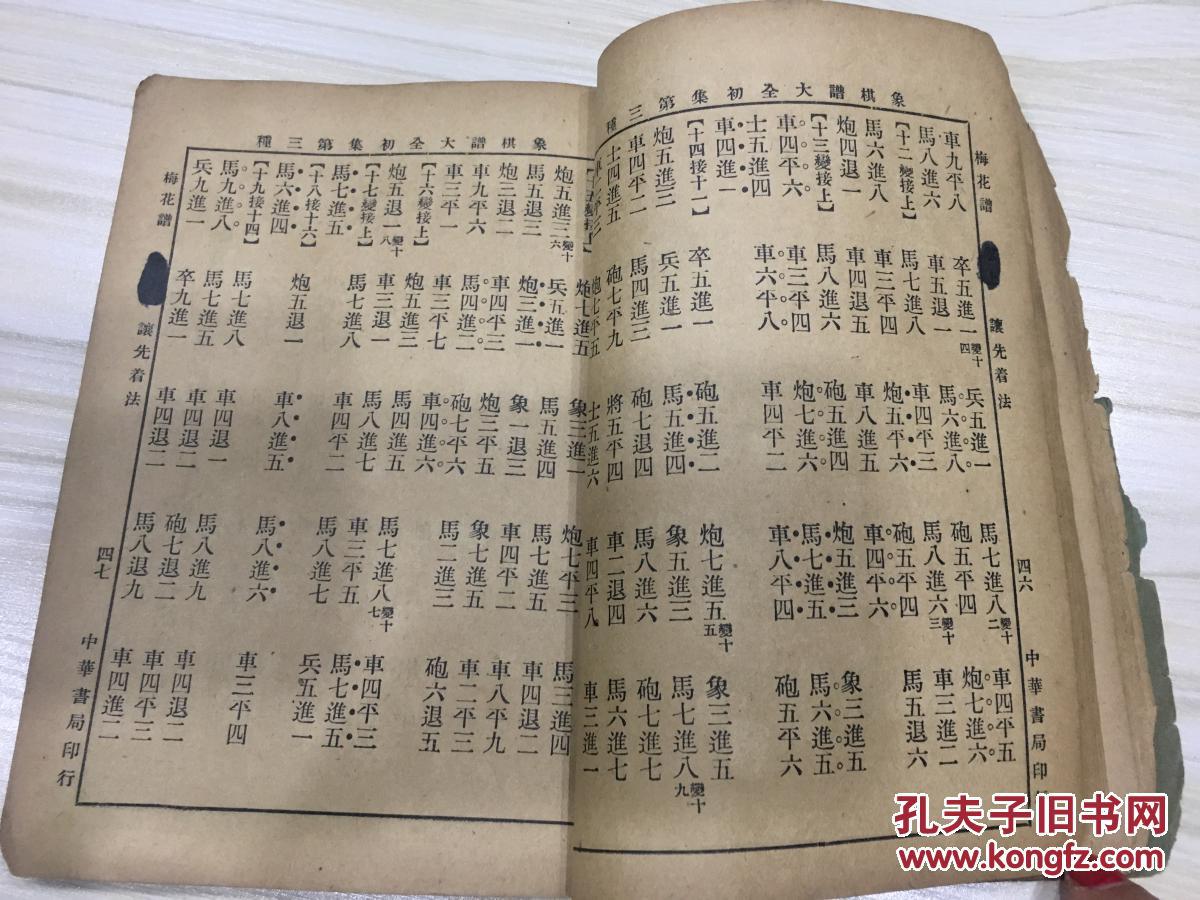 象棋譜大全初集第三種
梅花譜 讓先着法 四六 中華書局印
車九平八 卒五進一變十四 兵五進一 馬七進八變十二 車四平五
馬八進六 車五退一 馬六進八 砲五平四 炮七進六
【十二變接上】 馬七進八 車四平三 馬八進六變十三 車三進二
馬六進八 車三平四 炮五平六 砲五平四 馬五退六
炮四退一 車四退五 車八進五 車四平六
【十三變接上】 馬八進六 砲五進四 炮五進三 象三進五
車四平六 車三平四 炮七進六 馬七進五 馬六進五
士五進四 車六平八 車四平二 車八平四 砲五平六
車四進一
【十四接十一】 卒五進一 砲五進二 炮七進五變十五 象三進五
炮五進三 兵五進一 馬五進四 象五進三 馬七進八變十九
車四平二 馬四進三 砲七退四 馬八進六 砲七進七
士四進五 砲七平九 將五平四 車二退四 馬六進七
車二平三 炮七平五 士五進六 車四平八 車三進一
象棋譜大全初集第三種
炮七進五 象三進一 炮七平三 馬三進四
炮五進三變十六 兵五進一 馬五進四 馬七進五 車四退二
馬五進三 炮三進一 象一退三 車四平二 車八平九
炮三退二 車四平三 炮三平五 象七進五 車二平三
車九平六 馬四進二 砲七平六 馬二進三 砲六退五
車三平一 車三平七 車四進六
【十六變接上】 炮五進三 馬四進五 馬七進八變十七 車四平三
炮五退一變十八 車三退一 馬八進七 車三平五 馬七進五
【十七變接上】 馬七進八 車四平二 馬八進七 兵五進一
馬七進五
【十八接十六】 炮五退一 車八進五 馬八進六 車三平四
馬六進四
【十九接十四】 馬七進八 車四退一 馬八進九 車四退二
馬九進八 馬七進五 車四退二 砲七退二 車四平三
兵九進一 卒九進一 車四退二 馬八退九 車四進二
梅花譜 讓先着法 四七 中華書局印行
孔夫子旧书网
www.kongfz.com